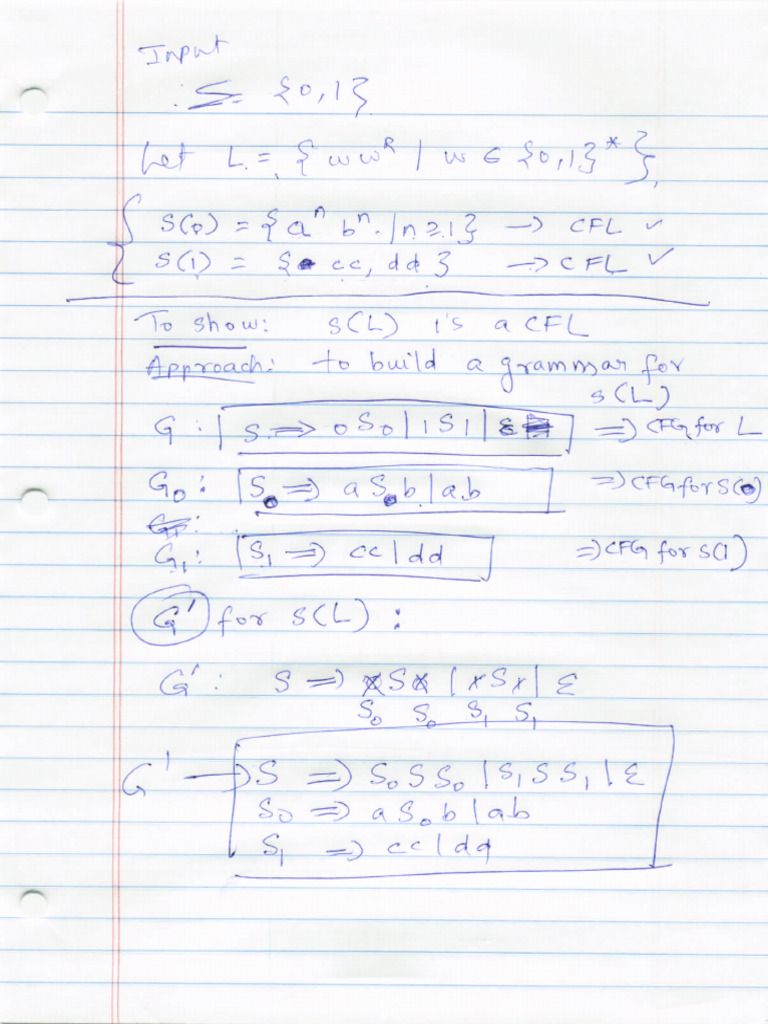 Input
: Σ = {0,1}
Let L = { w w^R | w ∈ {0,1}* },
S(0) = {a^n b^n | n ≥ 1} → CFL ✓
S(1) = { cc, dd } → CFL ✓
To show: S(L) is a CFL
Approach: to build a grammar for
S(L)
G : S ⇒ 0S0 | 1S1 | ε ⇒ CFG for L
G₀ : S₀ ⇒ a S₀ b | ab ⇒ CFG for S(0)
G₁ : S₁ ⇒ cc | dd ⇒ CFG for S(1)
G' for S(L) :
G' : S ⇒ S | S | ε
S₀ S₀ S₁ S₁
G' → S ⇒ S₀ S S₀ | S₁ S S₁ | ε
S₀ ⇒ a S₀ b | ab
S₁ ⇒ cc | dd